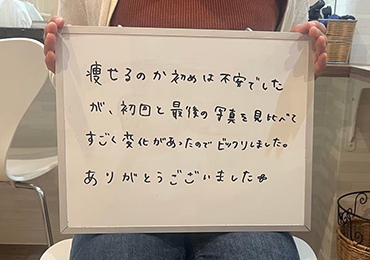 痩せるのか初めは不安でした
が、初回と最後の写真を見比べて
すごく変化があったのでビックリしました。
ありがとうございました